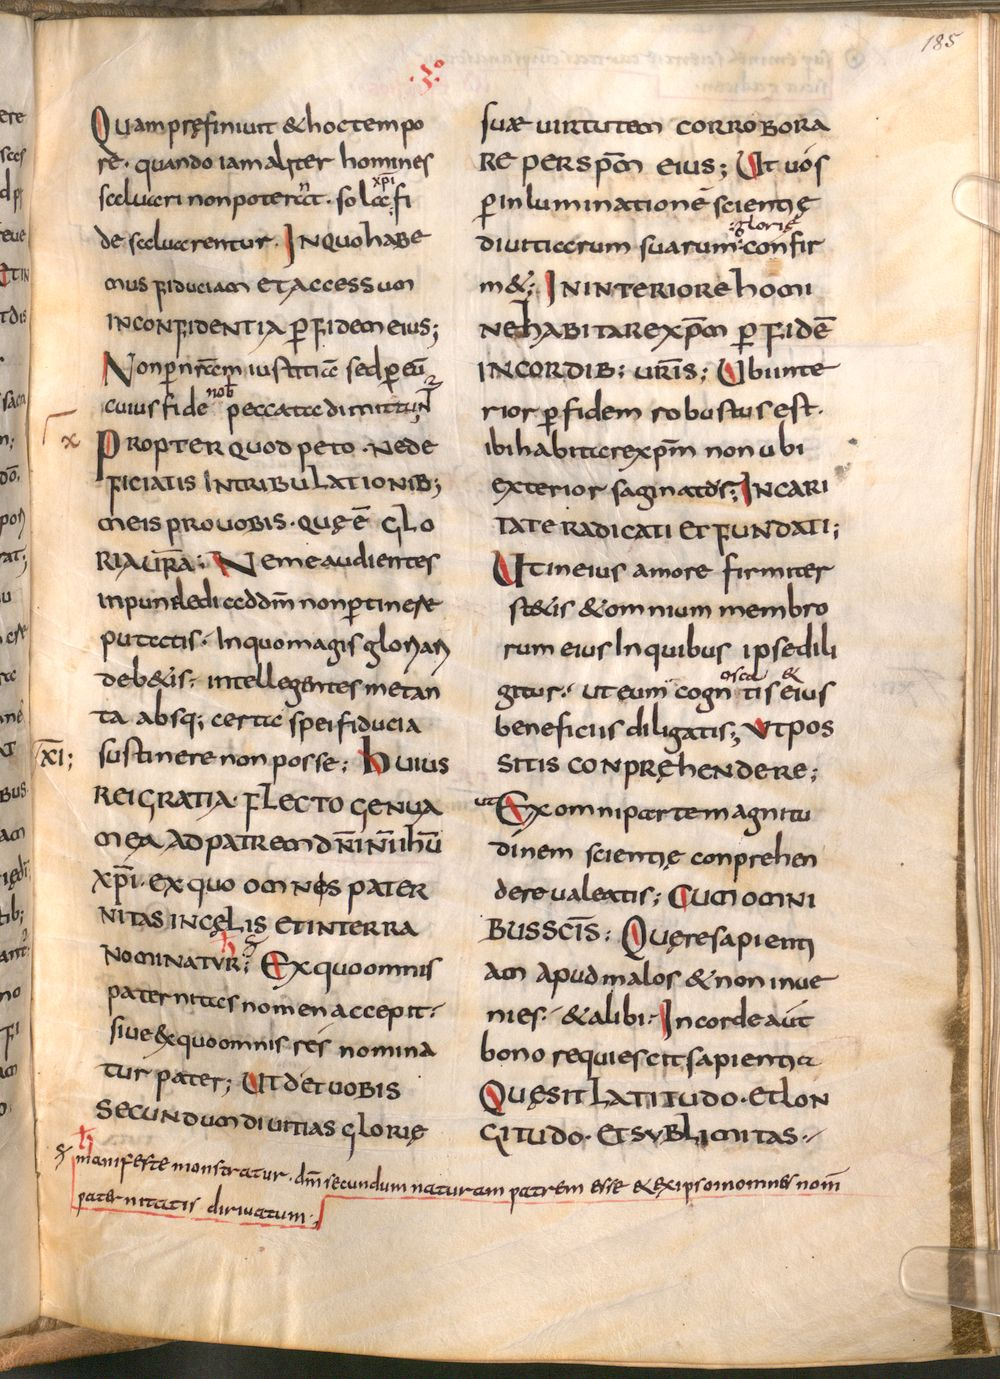 185
Quam pręfiniuit & hoc tempo
re· quando iam aliter homines
saluari non poterant· sola xp̄i fi
de saluarentur· In quo habe
mus fiduciam et accessum
in confidentia ꝑ fidem eius;
Non ꝑ nr̄am iustitia sed ꝑ eū
cuius fide nob peccata dimittunt᷑
x Propter quod peto· ne de
ficiatis in tribulationib;
meis pro uobis· quę ē glo
ria ur̄a; Ne me audientes
inpune ledi ad dm̄ non ꝑtinere
putetis· In quo magis gloriari
deb&is· intellegentes me tan
ta absq; certa spei fiducia
XI; sustinere non posse; Huius
rei gratia· flecto genua
mea ad patrem dn̄i nr̄i ihū
xp̄i· ex quo omnes pater
nitas in cęlis et in terra
nominatur; Ex quo omnis
paternitas nomen accepit·
siue & quo omnis res nomina
tur pater; Ut det uobis
secundum diuitias glorię
suæ uirtutem corrobora
re per sp̄m eius; Ut uos
ꝑ inluminationē scientię
diuitiarum suarum glorię confir
m&; In interiore homi
ne habitare xp̄m ꝑ fidē
in cordib; ur̄is; Ubi inte
rior ꝑ fidem robustus est·
ibi habitare xp̄m non ubi
exterior saginatus; In cari
tate radicati et fundati;
Ut in eius amore firmiter
st&is & omnium membro
rum eius In quibus ipse dili
gitur· ut eum cognoscatis & eius
beneficiis diligatis; Ut pos
sitis conpręhendere;
ut Ex omni parte magnitu
dinem scientię conprehen
dere ualeatis; Cum omni
bus sc̄is; Quęre sapienti
am apud malos & non inue
nies· & alibi· In corde aut̄
bono requiescit sapientia
Quę sit latitudo· et lon
gitudo· et sublimitas·
manifeste monstratur· dm̄ secundum naturam patrem esse & ex ipso omnes nom̄
paternitatis diriuatum;